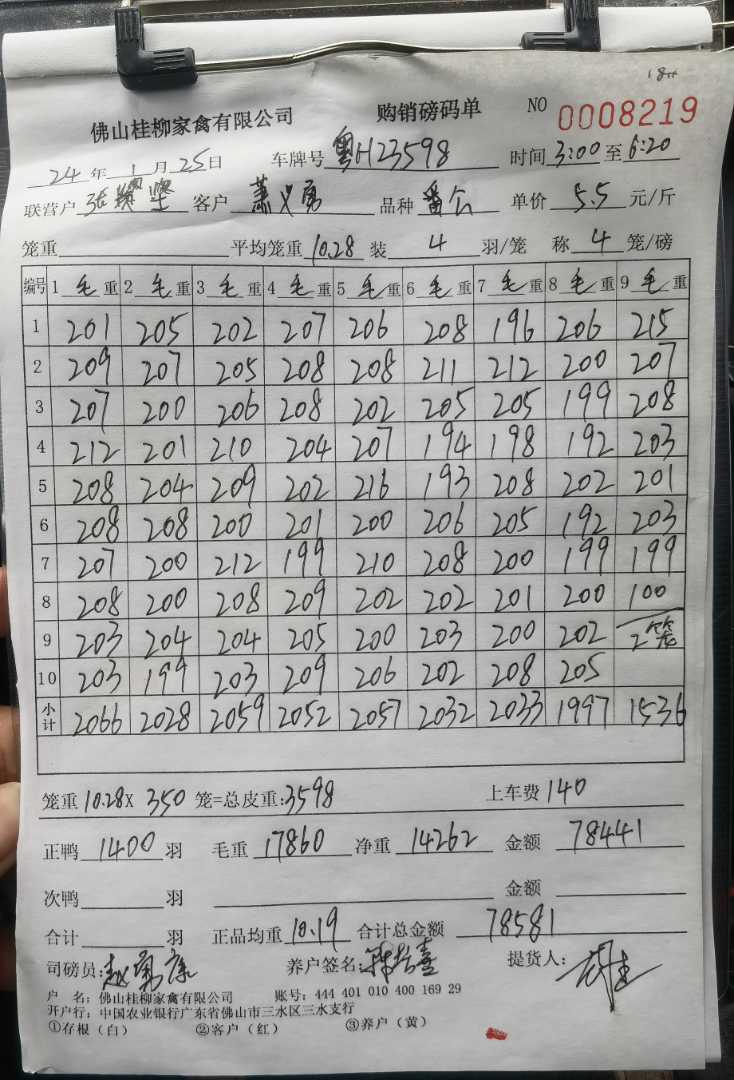 18
佛山桂柳家禽有限公司 购销磅码单 NO 0008219
24年1月25日 车牌号 粤H23598 时间 3:00 至 6:20
联营户 张 坚 客户 萧义勇 品种 番公 单价 5.5 元/斤
笼重 平均笼重 10.28 装 4 羽/笼 称 4 笼/磅
编号 1 毛 重 2 毛 重 3 毛 重 4 毛 重 5 毛 重 6 毛 重 7 毛 重 8 毛 重 9 毛 重
1 201 205 202 207 206 208 196 206 215
2 209 207 205 208 208 211 212 200 207
3 207 200 206 208 202 205 205 199 208
4 212 201 210 204 207 194 198 192 203
5 208 204 209 202 216 193 208 202 201
6 208 208 200 201 200 206 205 192 203
7 207 200 212 199 210 208 200 199 199
8 208 200 208 209 202 202 201 200 100
9 203 204 204 205 200 203 200 202 2笼
10 203 199 203 209 206 202 208 205
小计 2066 2028 2059 2052 2057 2032 2033 1997 1536
笼重 10.28 X 350 笼=总皮重: 3598 上车费 140
正鸭 1400 羽 毛重 17860 净重 14262 金额 78441
次鸭 羽 金额
合计 羽 正品均重 10.19 合计总金额 78581
司磅员: 赵勇康 养户签名: 提货人:
户 名: 佛山桂柳家禽有限公司 账号: 444 401 010 400 169 29
开户行: 中国农业银行广东省佛山市三水区三水支行
①存根（白） ②客户（红） ③养户（黄）